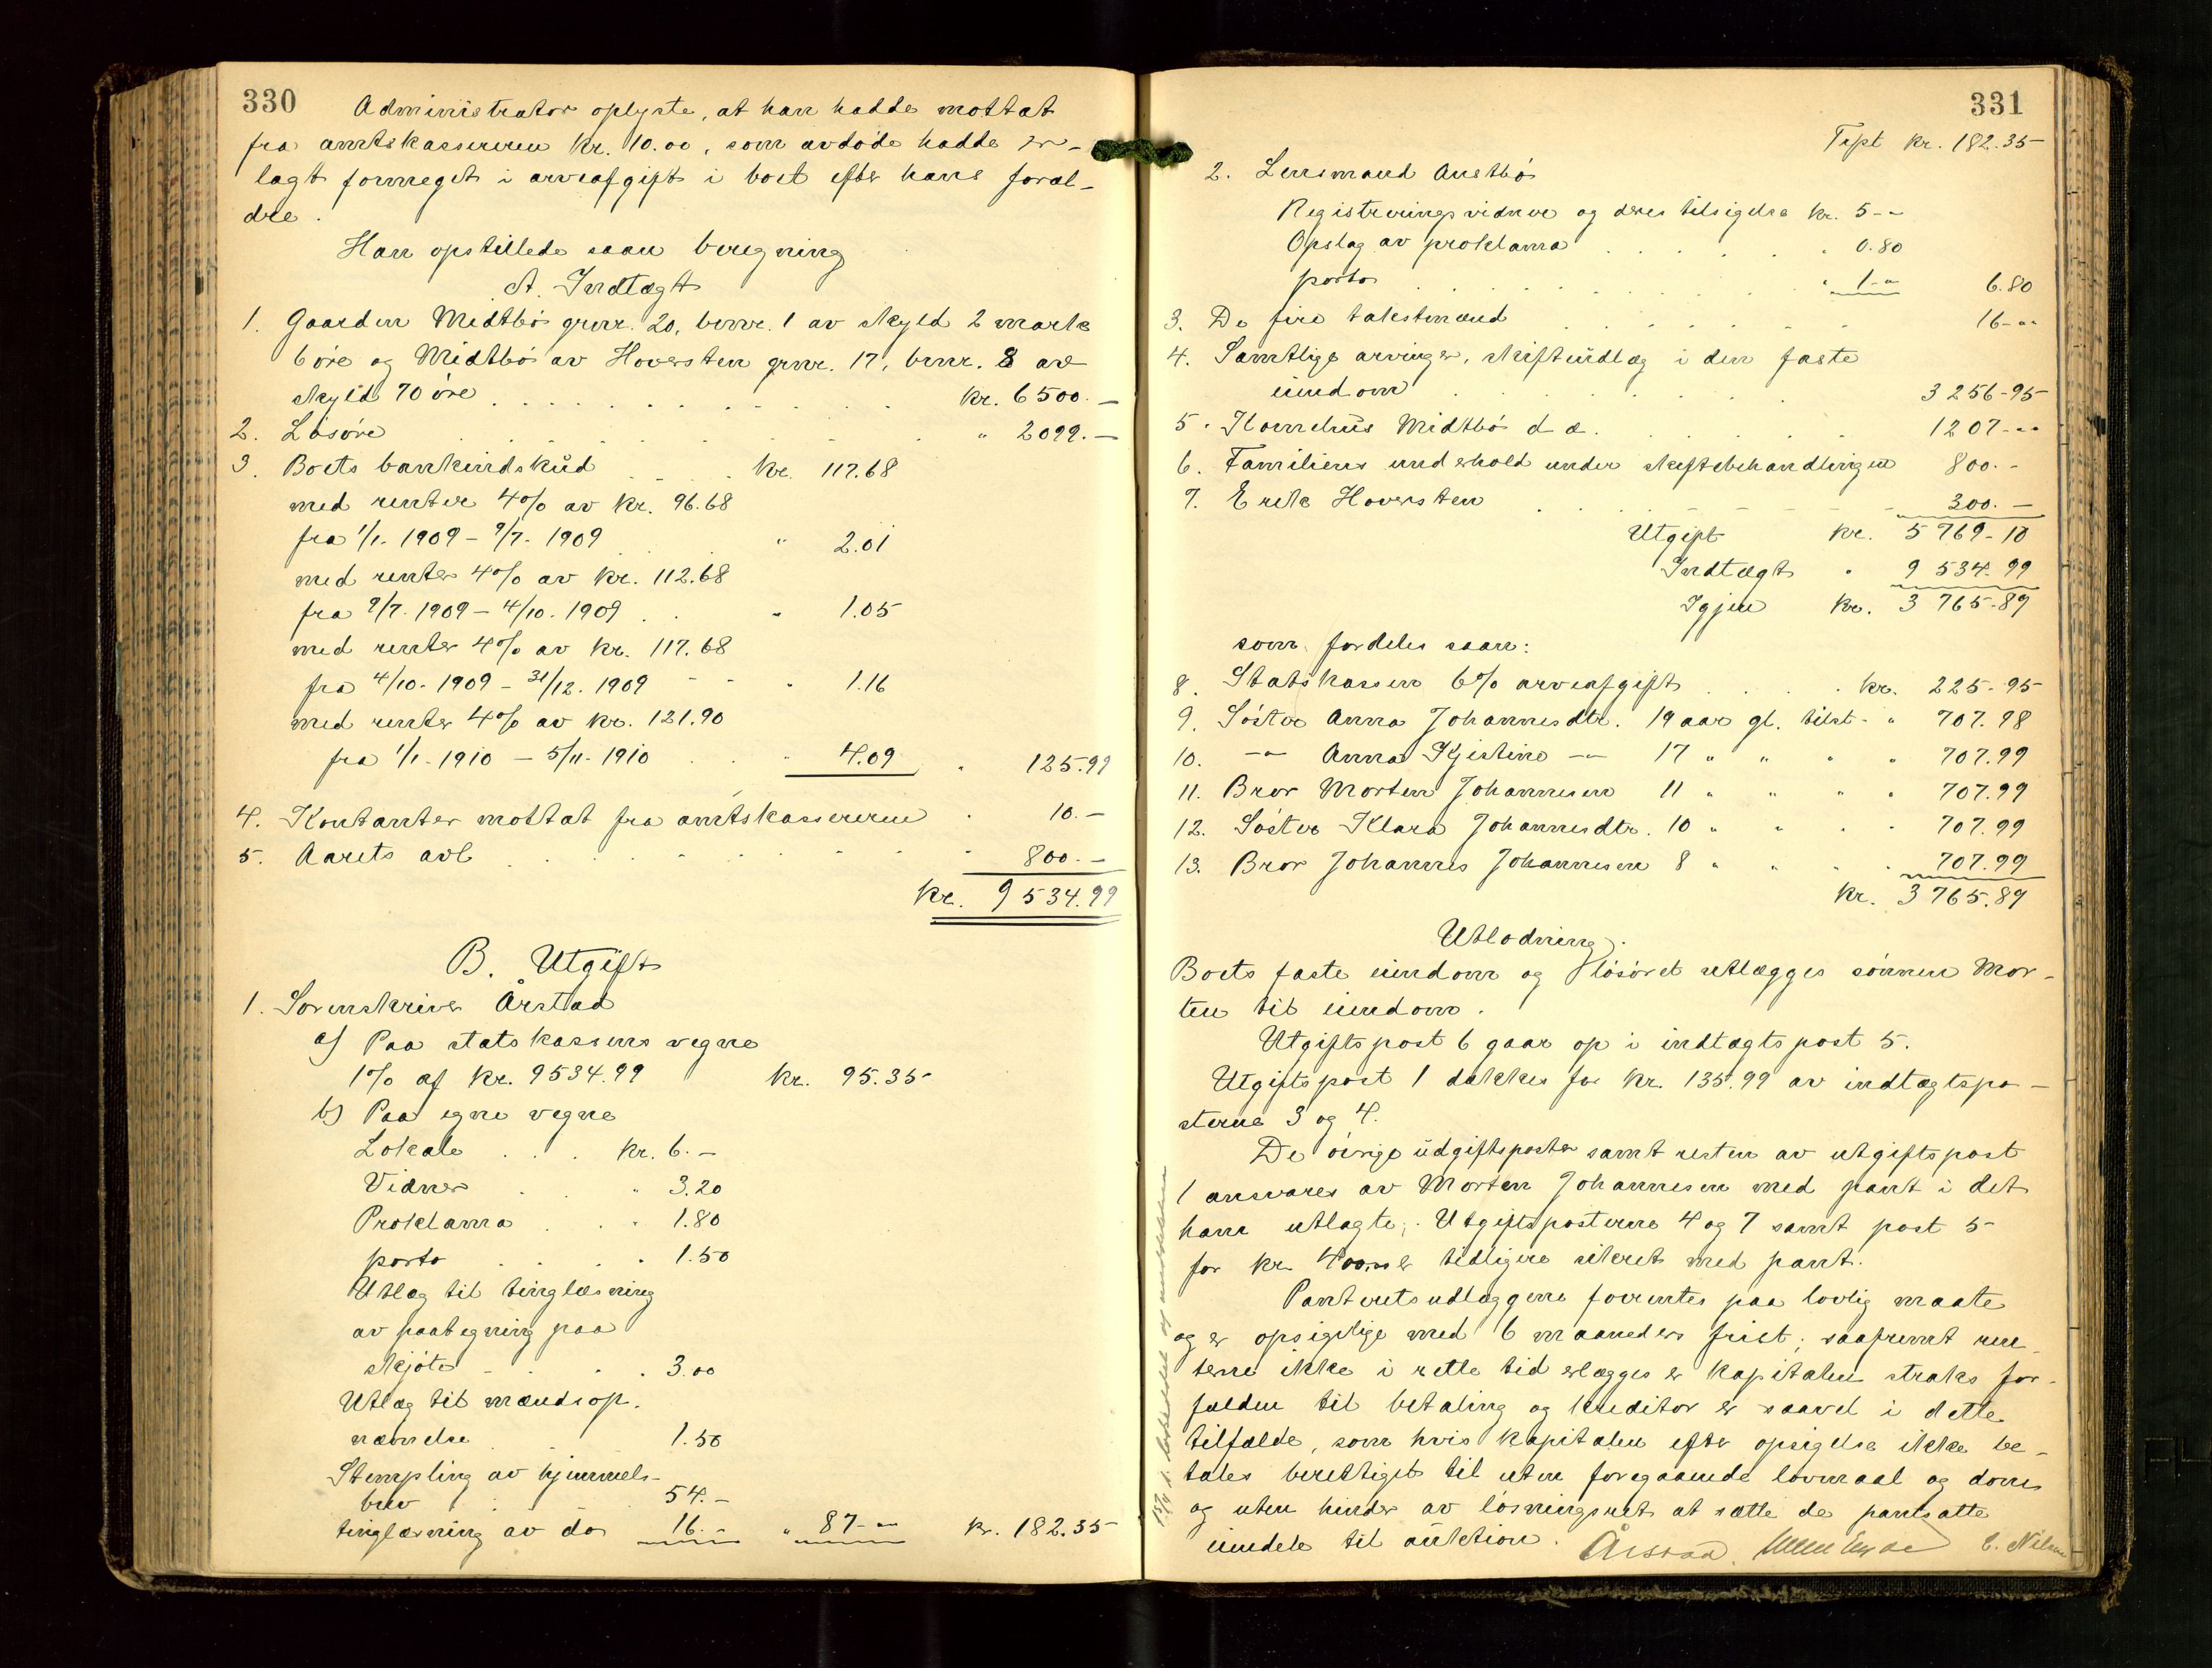 330
Administrator oplyste, at han hadde mottat
fra amtskassereren kr. 10.00, som avdøde hadde er-
lagt formeget i arveafgift i boet efter hans foræl-
dre.
Han opstillede saan beregning
A. Indtægt
1. Gaarden Midtbø grnr. 20, brnr. 1 av skyld 2 mark
6 øre og Midtbø av Hoversten grnr. 17, brnr. 8 av
skyld 70 øre . . . kr. 6500.—
2. Løsøre . . . " 2099.—
3. Boets bankindskud . . . kr. 117.68
med renter 4% av kr. 96.68
fra 1/1. 1909 – 9/7. 1909 . " 2.01
med renter 4% av kr. 112.68
fra 9/7. 1909 – 4/10. 1909 . . " 1.05
med renter 4% av kr. 117.68
fra 4/10. 1909 – 31/12. 1909 - - " 1.16
med renter 4% av kr. 121.90
fra 1/1. 1910 – 5/11. 1910 . . " 4.09 " 125.99
4. Kontanter mottat fra amtskassereren " 10.—
5. Aarets avl . . . " 800.—
kr. 9534.99
B. Utgift
1. Sorenskriver Årstad
a) Paa statskassens vegne
1% af kr. 9534.99 kr. 95.35
b) Paa egne vegne
Lokale . . . kr. 6.—
Vidner . . " 3.20
Proklama . . " 1.80
porto . . . " 1.50
Utlæg til tinglæsning
av paategning paa
skjøte - . . . 3.00
Utlæg til mændsop.
nævnelse . . 1.50
Stempling av hjemmels-
brev . . 54.—
tinglæsning av do 16.– " 87-" kr. 182.35
331
Tept kr. 182.35
2. Lensmand Austbø
Registreringsvidner og deres tilsigelse kr. 5--
Opslag av proklama . . . " 0.80
porto . . . " 1-" 6.80
3. De fire takstmænd . . . 16-"
4. Samtlige arvinger, skifteudlæg i den faste
eiendom . . . 3256-95
5. Kornelius Midtbø d æ. . . . 1207-"
6. Familiens underhold under skiftebehandlingen 800.-
7. Erik Hoversten . . . 300.—
Utgift kr. 5769-10
Indtægt " 9534.99
Igjen kr. 3765-89
som fordeles saan:
8. Statskassen 6% arveafgift . . . kr. 225-95
9. Søster Anna Johannesdtr. 19 aar gl. tilst- " 707.98
10. —"— Anna Kjistine —"— 17 " " " " 707.99
11. Bror Morten Johannesen 11 " " " " 707.99
12. Søster Klara Johannesdtr. 10 " " " " 707.99
13. Bror Johannes Johannesen 8 " " " 707.99
kr. 3765.89
Utlodning.
Boets faste eiendom og løsøret utlægges sønnen Mor-
ten til eiendom.
Utgiftspost 6 gaar op i indtægtspost 5.
Utgiftspost 1 dækkes for kr. 135.99 av indtægtspo-
sterne 3 og 4.
De øvrige üdgiftsposter samt resten av utgiftspost
1 ansvares av Morten Johannesen med pant i det
ham utlagte; Utgiftsposterne 4 og 7 samt post 5
for kr. 400.00 er tidligere sikret med pant.
Panteretsudlæggene forrentes paa lovlig maate
og er opsigelige med 6 maaneders frist; saafremt ren-
terne ikke i rette tid erlægges er kapitalen straks for-
falden til betaling og kreditor er saavel i dette
tilfælde, som hvis kapitalen efter opsigelse ikke be-
tales berettiget til uten foregaaende lovmaal og dom
og uten hinder av løsningsret at sætte de pantsatte
eiendele til auktion. Årstad. E. Nilsen